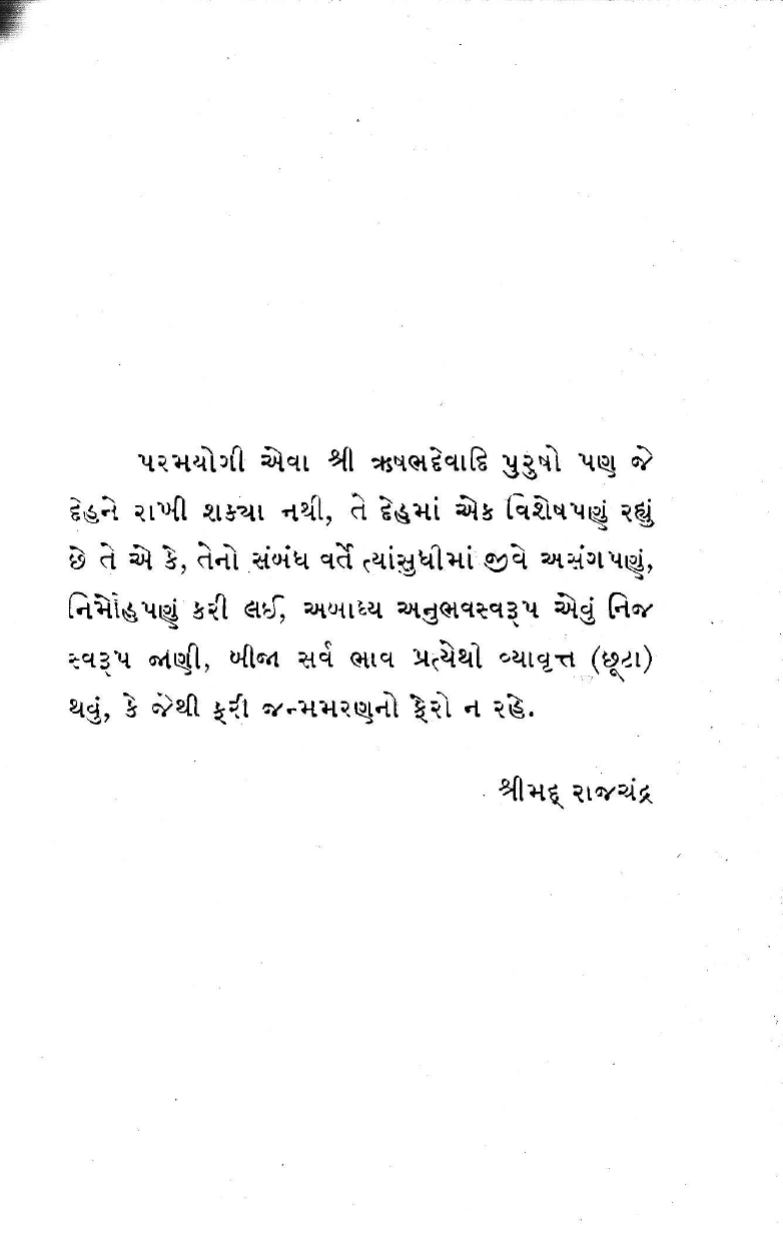 પરમયોગી એવા શ્રી ઋષભદેવાદિ પુરુષો પણ જે
દેહને રાખી શક્યા નથી, તે દેહમાં એક વિશેષપણું રહ્યું
છે તે એ કે, તેનો સંબંધ વર્તે ત્યાંસુધીમાં જીવે અસંગપણું,
નિર્મોહપણું કરી લઈ, અબાધ્ય અનુભવસ્વરૂપ એવું નિજ
સ્વરૂપ જાણી, બીજા સર્વ ભાવ પ્રત્યેથી વ્યાવૃત્ત (છૂટા)
થવું, કે જેથી ફરી જન્મમરણનો ફેરો ન રહે.
શ્રીમદ્ રાજચંદ્ર